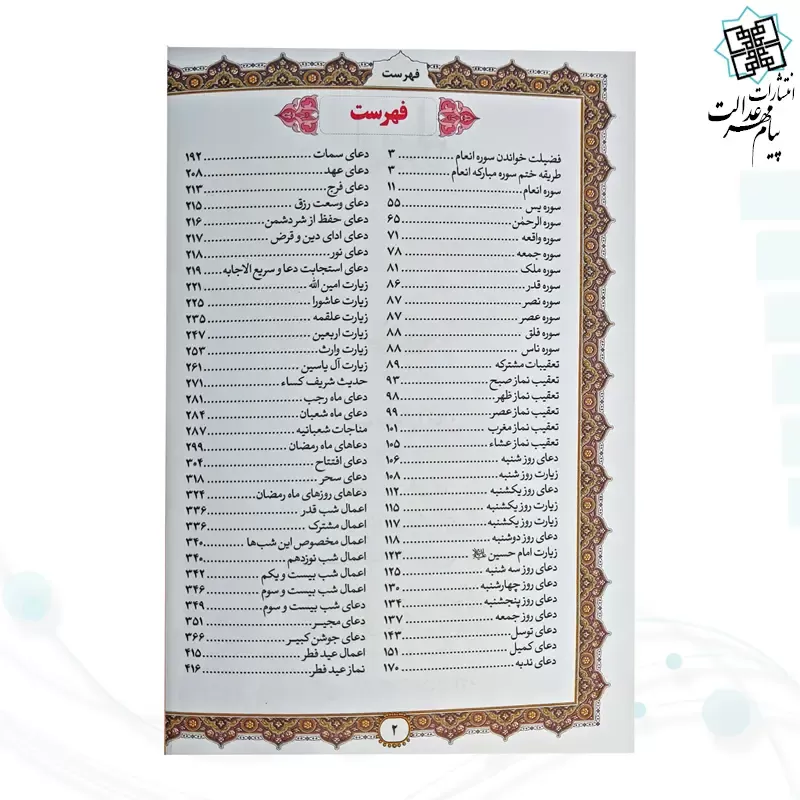 انتشارات
پیام مهر عدالت
فهرست
فهرست
فضیلت خواندن سوره انعام ۳
طریقه ختم سوره مبارکه انعام ۳
سوره انعام ۱۱
سوره یس ۵۵
سوره الرحمن ۶۵
سوره واقعه ۷۱
سوره جمعه ۷۸
سوره ملک ۸۱
سوره قدر ۸۶
سوره نصر ۸۷
سوره عصر ۸۷
سوره فلق ۸۸
سوره ناس ۸۸
تعقیبات مشترکه ۸۹
تعقیب نماز صبح ۹۳
تعقیب نماز ظهر ۹۸
تعقیب نماز عصر ۹۹
تعقیب نماز مغرب ۱۰۱
تعقیب نماز عشاء ۱۰۵
دعای روز شنبه ۱۰۶
زیارت روز شنبه ۱۰۸
دعای روز یکشنبه ۱۱۲
زیارت روز یکشنبه ۱۱۵
زیارت روز یکشنبه ۱۱۷
دعای روز دوشنبه ۱۱۸
زیارت امام حسین ۱۲۳
دعای روز سه شنبه ۱۲۵
دعای روز چهارشنبه ۱۳۰
دعای روز پنجشنبه ۱۳۴
دعای روز جمعه ۱۳۷
دعای توسل ۱۴۳
دعای کمیل ۱۵۱
دعای ندبه ۱۷۰
دعای سمات ۱۹۲
دعای عهد ۲۰۸
دعای فرج ۲۱۳
دعای وسعت رزق ۲۱۵
دعای حفظ از شر دشمن ۲۱۶
دعای ادای دین و قرض ۲۱۷
دعای نور ۲۱۸
دعای استجابت دعا و سریع الاجابه ۲۱۹
زیارت امین الله ۲۲۱
زیارت عاشورا ۲۲۵
زیارت علقمه ۲۳۵
زیارت اربعین ۲۴۷
زیارت وارث ۲۵۳
زیارت آل یاسین ۲۶۱
حدیث شریف کساء ۲۷۱
دعای ماه رجب ۲۸۱
دعای ماه شعبان ۲۸۴
مناجات شعبانیه ۲۸۷
دعاهای ماه رمضان ۲۹۹
دعای افتتاح ۳۰۴
دعای سحر ۳۱۸
دعاهای روزهای ماه رمضان ۳۲۴
اعمال شب قدر ۳۳۶
اعمال مشترک ۳۳۶
اعمال مخصوص این شب‌ها ۳۴۰
اعمال شب نوزدهم ۳۴۰
اعمال شب بیست و یکم ۳۴۲
اعمال شب بیست و سوم ۳۴۶
دعای شب بیست و سوم ۳۴۹
دعای مجیر ۳۵۱
دعای جوشن کبیر ۳۶۶
اعمال عید فطر ۴۱۵
نماز عید فطر ۴۱۶
۲